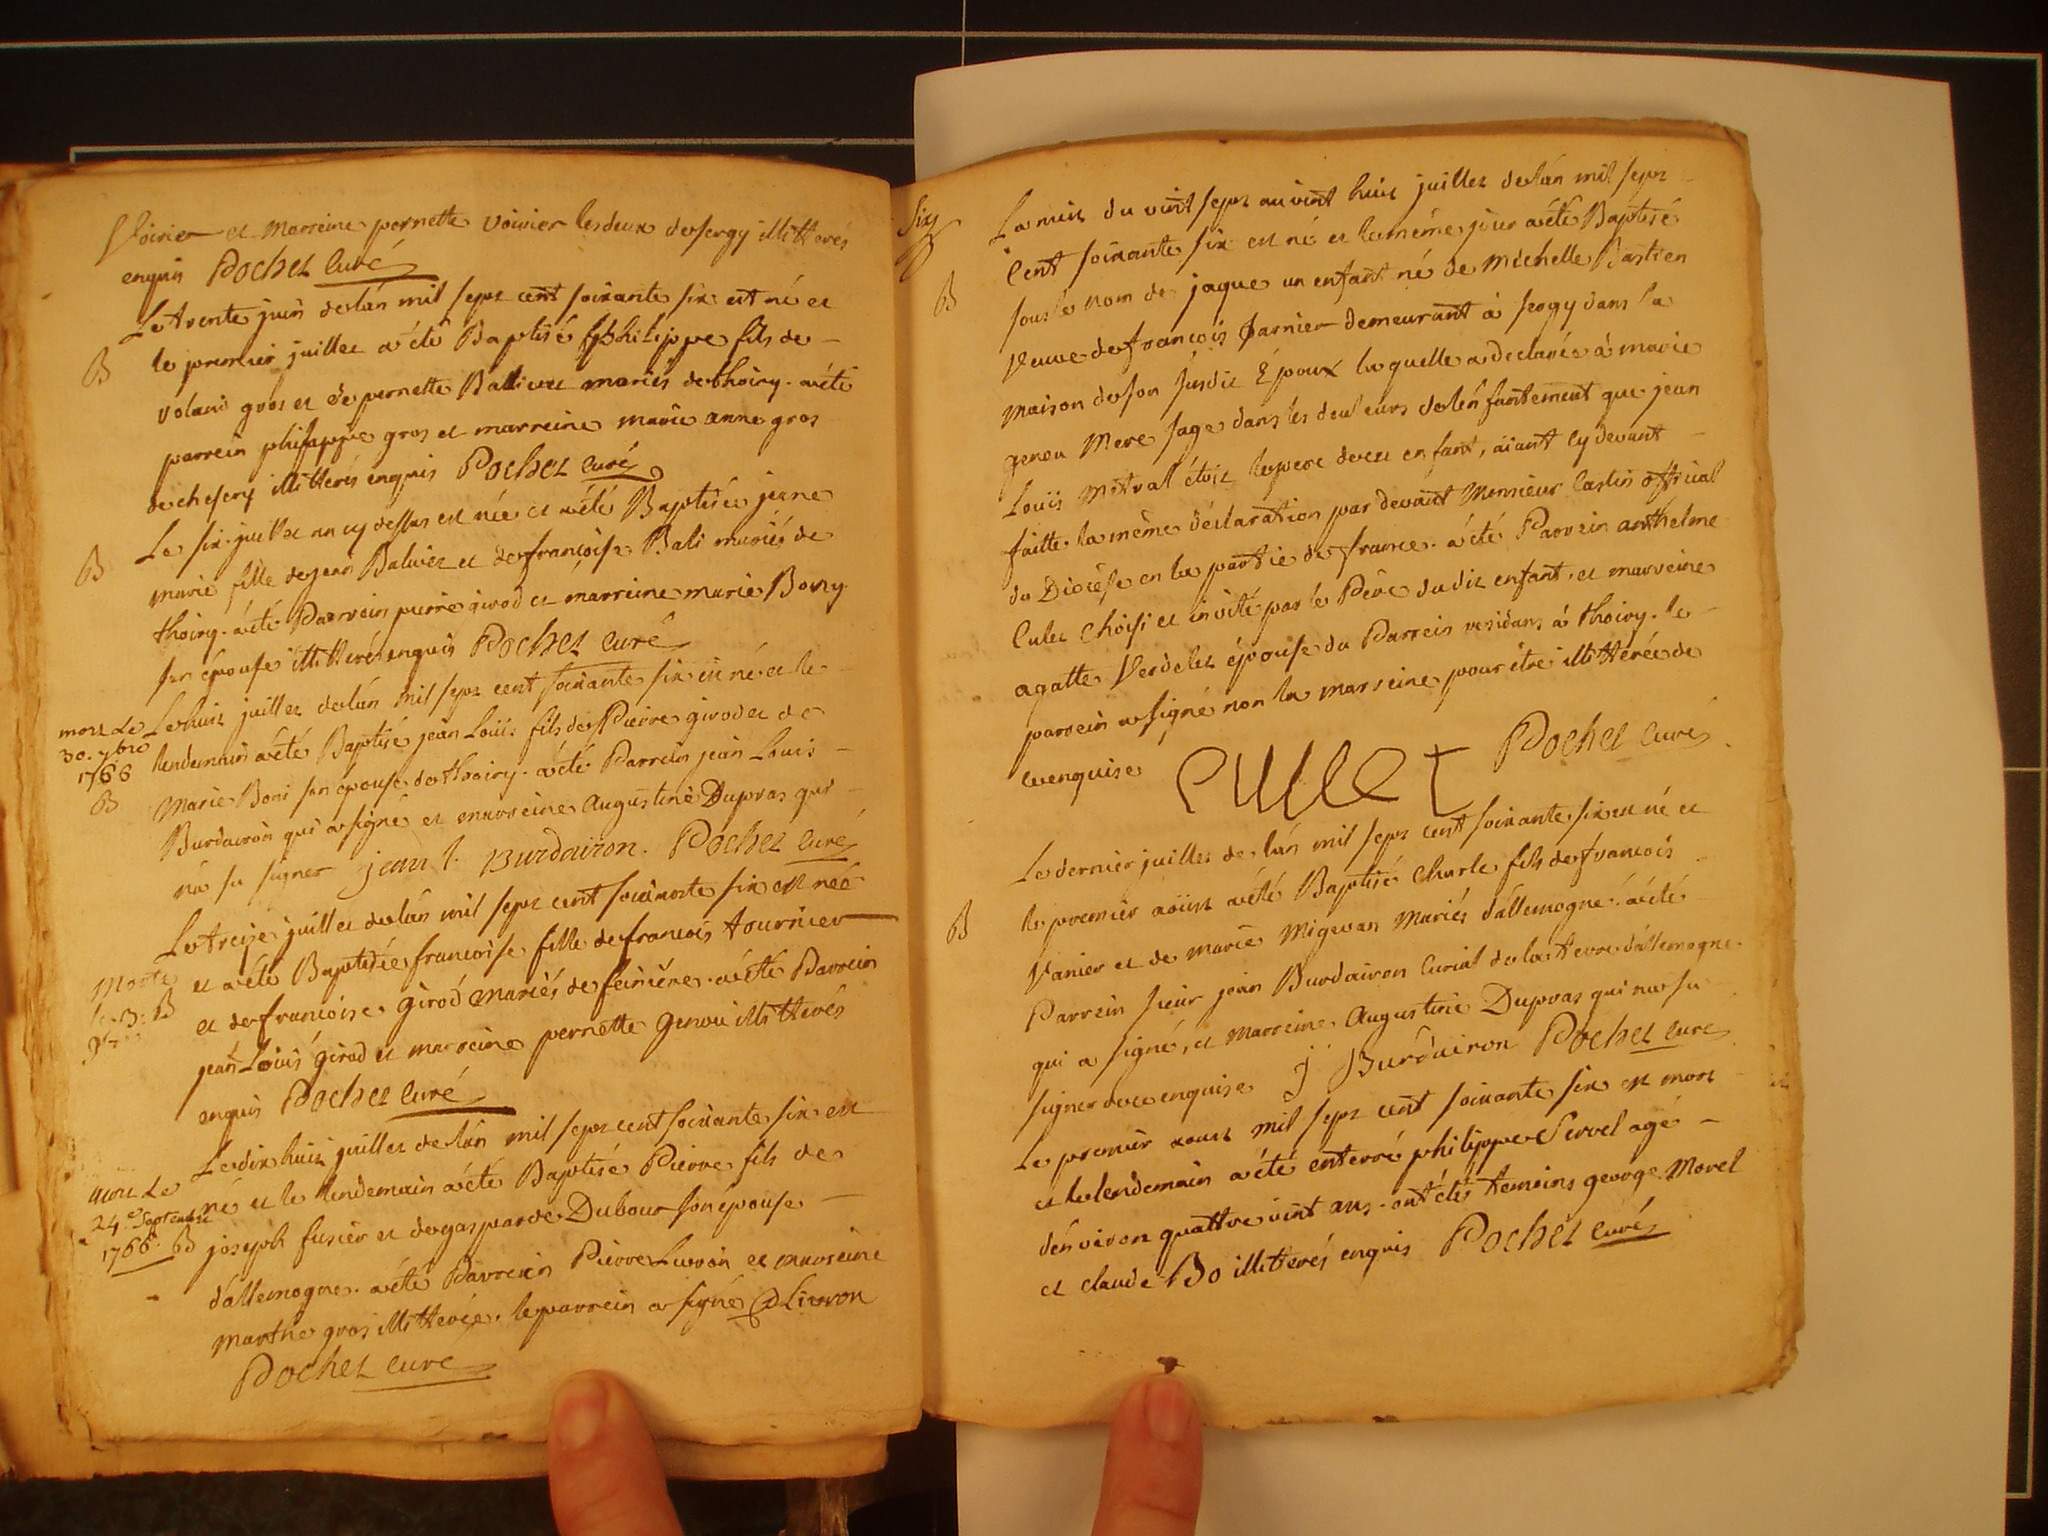 Voirier et Marreine pernette Voirier les deux de sergy illitterés
enquis Pochet Curé
Le trente juin de lán mil sept cent soixante six est né et
B
le premier juillet a été Baptisé philippe fils de
volant gros et de pernette mariés de thoiry. a été
parrein philippe gros et marreine marie anne gros
de chesery illitterés enquis Pochet Curé
B
Le six juillet an cy dessus est née et a été Baptisée jeane
marie fille de jean Balivet et de françoise Bali mariés de
thoiry. a été Parrein pierre girod et marreine marie Bony
son épouse illitterés enquis Pochet Curé
mort Le
30. 7bre
1766
B
Le huit juillet de lán mil sept cent soixante six est né et le
lendemain a été Baptisé jean Loüis fils de Pierre girod et de
Marie Boni son epouse de thoiry. a été Parrein jean Louis
Burdairon qui a signé et marreine Augustine Dupras qui
ná su signer jean l. Burdairon. Pochet Curé
Le treise juillet de lán mil sept cent soixante six est née
Morte
B
et a été Baptisée francoise fille de francois tournier
et de francoise girod mariés de feiniéres. a été Parrein
jean Loüis girod et marreine pernette genou illitterés
enquis Pochet Curé
Le dix huit juillet de lán mil sept cent soixante six est
mort Le
24.e Septembre
1766. B
né et le lendemain a été Baptisé Pierre fils de
joseph fusier et de gasparde Dubour son épouse
dállemogne. a été Parrein Pierre Livron et marreine
marthe gros illitterée. le parrein a signé P Livron
Pochet Curé
six
La nuit du vint sept au vint huit juillet de lán mil sept
cent soixante six est né et le même jour a été Baptisé
B
sous le nom de jaque un enfant né de Michelle Bastien
Veuve de françois demeurant à sergy dans la
maison de son susdit Epoux laquelle a declarée à marie
genou Mere sage dans les douleurs de lénfantement que jean
Loüis étoit le pere de cet enfant, aiant cy devant
faitte la même déclaration par devant Monsieur Castin official
du Diocése en la partie de france. a été Parrein anthelme
Culet choisi et invité par le Pére du dit enfant. et marreine
agatte Verdelet épouse du Parrein residans à thoiry. le
parrein a signé non la marreine pour être illitterée de
ce enquise CULLET Pochet Curé
Le dernier juillet de lán mil sept cent soixante six est né et
B
le premier aoüst a été Baptisé Charle fils de francois
Vanier et de marie Migevan Mariés dállemogne. a été
Parrein sieur jean Burdairon Curial de la terre dállemogne
qui a signé, et marreine Augustine Dupras qui na su
signer de ce enquise J Burdairon Pochet Curé
Le premier aoust mil sept cent soixante six est mort
et le lendemain a été enterré philippe Servel agé
dénviron quattre vint ans. ont étés temoins george Morel
et claude Bo illiterés enquis Pochet Curé